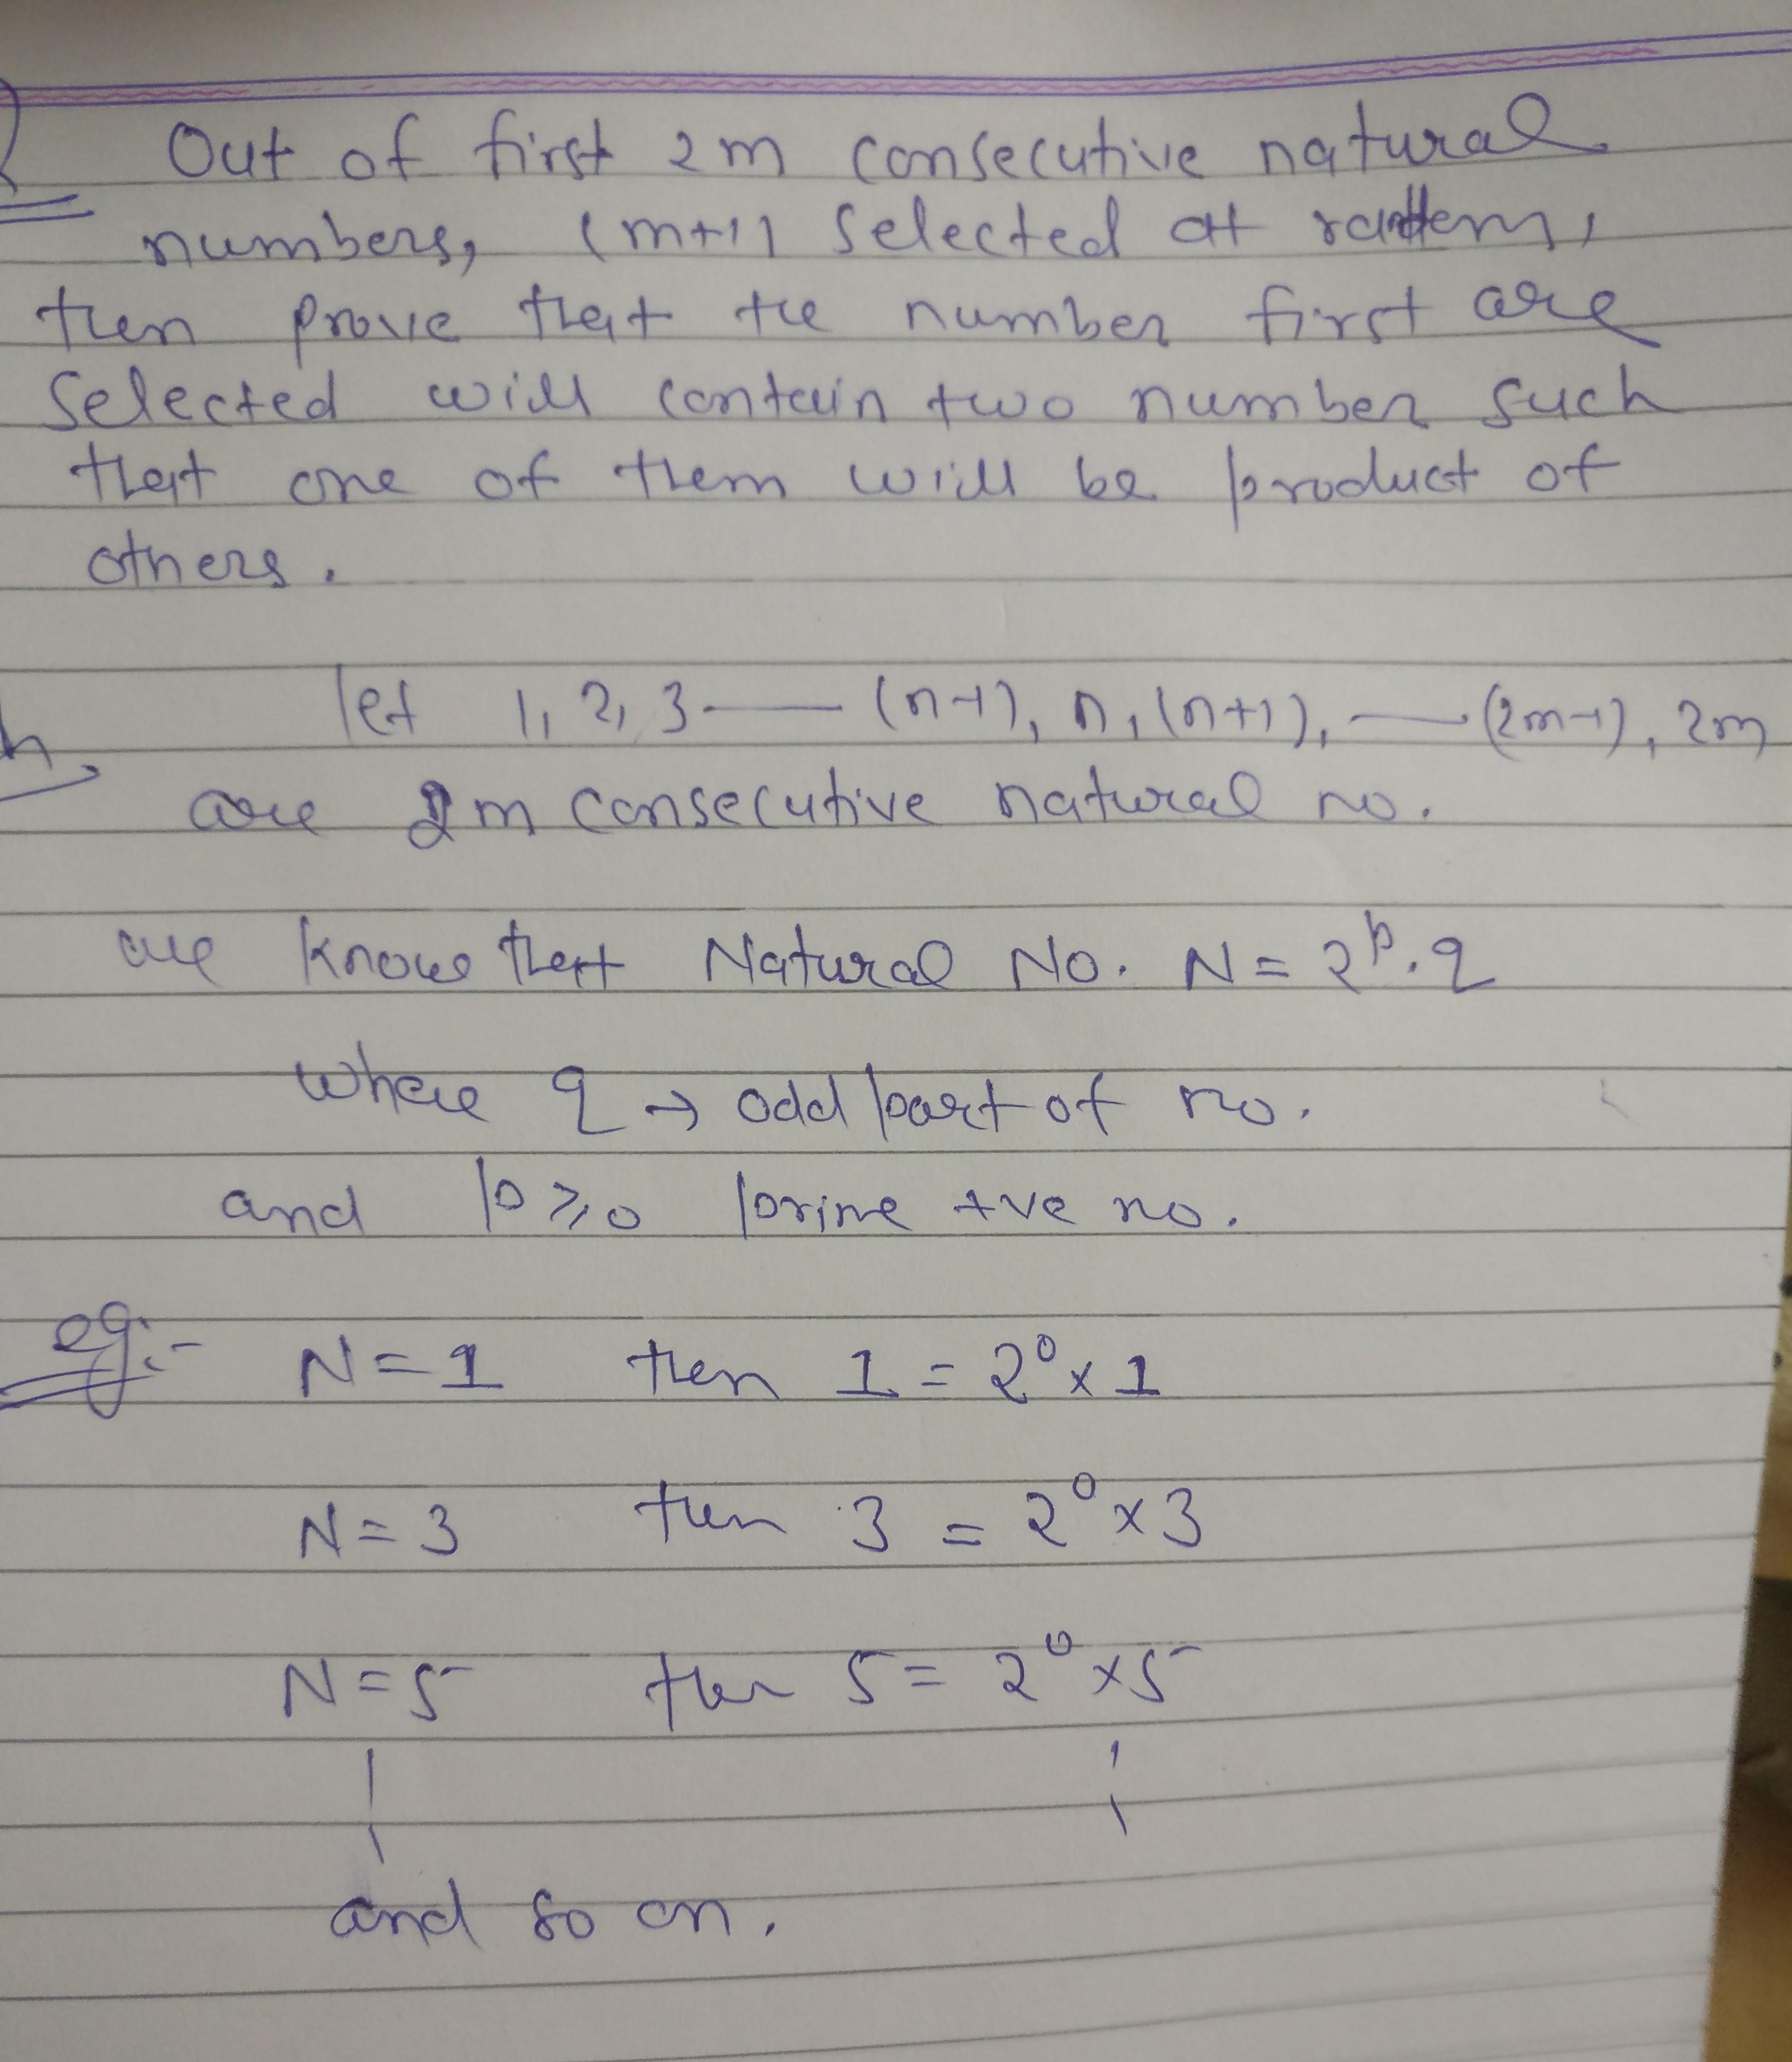 Out of first 2m consecutive natural
numbers, (m+1) selected at random,
then prove that the number first are
selected will contain two number such
that one of them will be product of
others.
let 1, 2, 3 —— (n-1), n, (n+1), —— (2m-1), 2m
are 2m consecutive natural no.
we know that Natural No. N = 2^p . q
where q → odd part of no.
and p ≥ 0 prime +ve no.
eg:- N = 1 then 1 = 2^0 x 1
N = 3 then 3 = 2^0 x 3
N = 5 then 5 = 2^0 x 5
and so on.